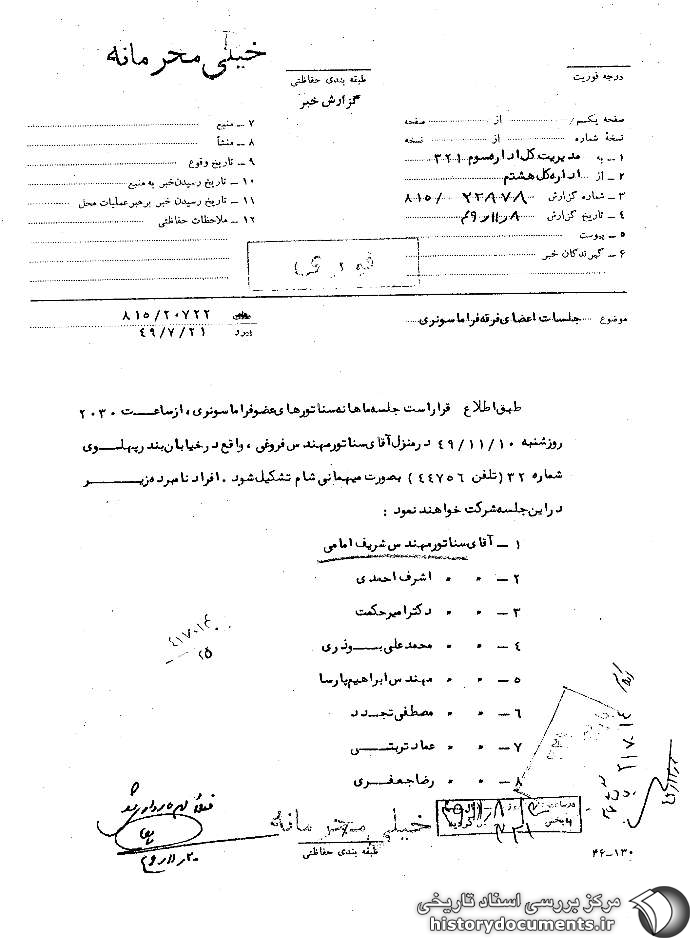 خیلی محرمانه
درجه فوریت
طبقه بندی حفاظتی
گزارش خبر
صفحه یکم/ از صفحه
نسخهٔ شماره از نسخه
۱ ــ به مدیریت کل اداره سوم ۳۲۱
۲ ــ از اداره کل هشتم
۳ ــ شماره گزارش ۲۳۹۷۸ /۸۱۵
۴ ــ تاریخ گزارش ۴۹/۱۱/۸
۵ ــ پیوست
۶ ــ گیرندگان خبر
۷ ــ منبع
۸ ــ منشأ
۹ ــ تاریخ وقوع
۱۰ ــ تاریخ رسیدن خبر به منبع
۱۱ ــ تاریخ رسیدن خبر برهبر عملیات محل
۱۲ ــ ملاحظات حفاظتی
موضوع جلسات اعضای فرقه فراماسونری
۸۱۵/۲۰۷۲۲
پیرو ۴۹/۷/۲۱
طبق اطلاع قرار است جلسه ماهانه سناتورهای عضو فراماسونری، از ساعت ۲۰۳۰
روز شنبه ۴۹/۱۱/۱۰ در منزل آقای سناتور مهندس فروغی، واقع در خیابان بندر پهلوی
شماره ۳۲ (تلفن ۴۴۷۵۶) بصورت میهمانی شام تشکیل شود. افراد نامبرده زیر
در این جلسه شرکت خواهند نمود:
۱ ــ آقای سناتور مهندس شریف امامی
۲ ــ " " اشرف احمدی
۳ ــ " " دکتر امیرحکمت
۴ ــ " " محمدعلی بوذری
۵ ــ " " مهندس ابراهیم پارسا
۶ ــ " " مصطفی تجدد
۷ ــ " " عماد تربتی
۸ ــ " " رضا جعفری
خیلی محرمانه
طبقه بندی حفاظتی
۴۶-۱۳۰
مرکز بررسی اسناد تاریخی
historydocuments.ir